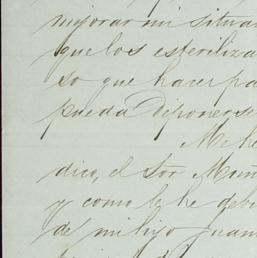 mejorar mi situa
que los esteriliza
so que hacer pa
pueda diponerse
Me he
dico, el Sor Muñ
y como le he debi
de mi hijo Juan